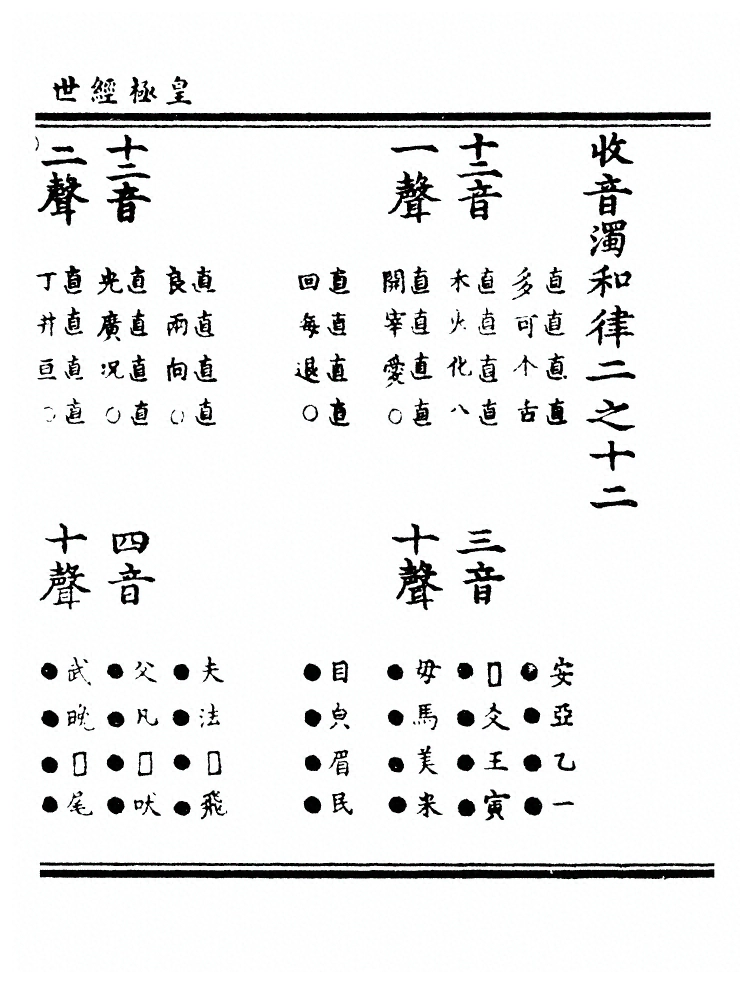 皇極經世
收音濁和律二之十二
十二音
一聲
直直直直
多可个舌
直直直直
禾火化八
直直直直
開宰愛○
直直直直
回每退○
三音
十聲
安亞乙一
●●●●
□爻王寅
●●●●
母馬美米
●●●●
目皃眉民
●●●●
十二音
二聲
直直直直
良兩向○
直直直直
光廣况○
直直直直
丁井亘○
四音
十聲
夫法□飛
●●●●
父凡□吠
●●●●
武晚□尾
●●●●